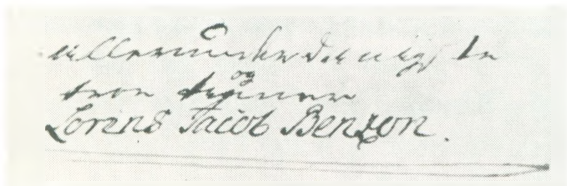 allerunderdanigste
troe og tiener
Lorens Jacob Benzon.